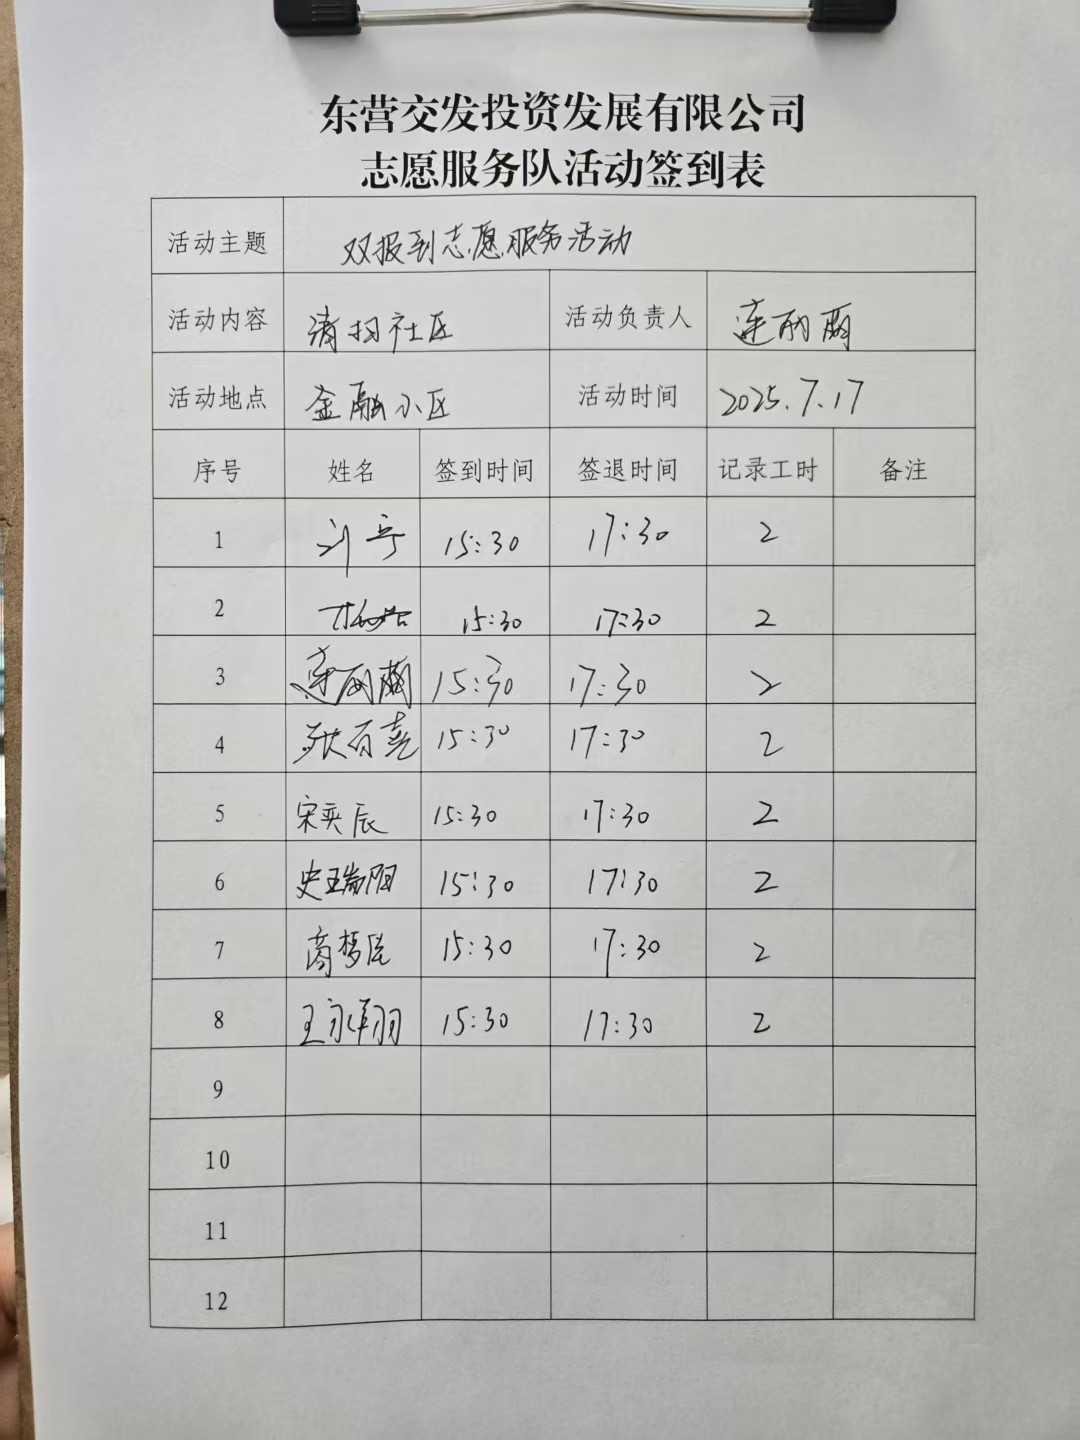 东营交发投资发展有限公司
志愿服务队活动签到表
活动主题 双报到志愿服务活动
活动内容 清扫社区 活动负责人 连丽丽
活动地点 金融小区 活动时间 2025.7.17
序号 姓名 签到时间 签退时间 记录工时 备注
1 15:30 17:30 2
2 15:30 17:30 2
3 15:30 17:30 2
4 15:30 17:30 2
5 宋奕辰 15:30 17:30 2
6 史瑞阳 15:30 17:30 2
7 商梦 15:30 17:30 2
8 王永翔 15:30 17:30 2
9
10
11
12